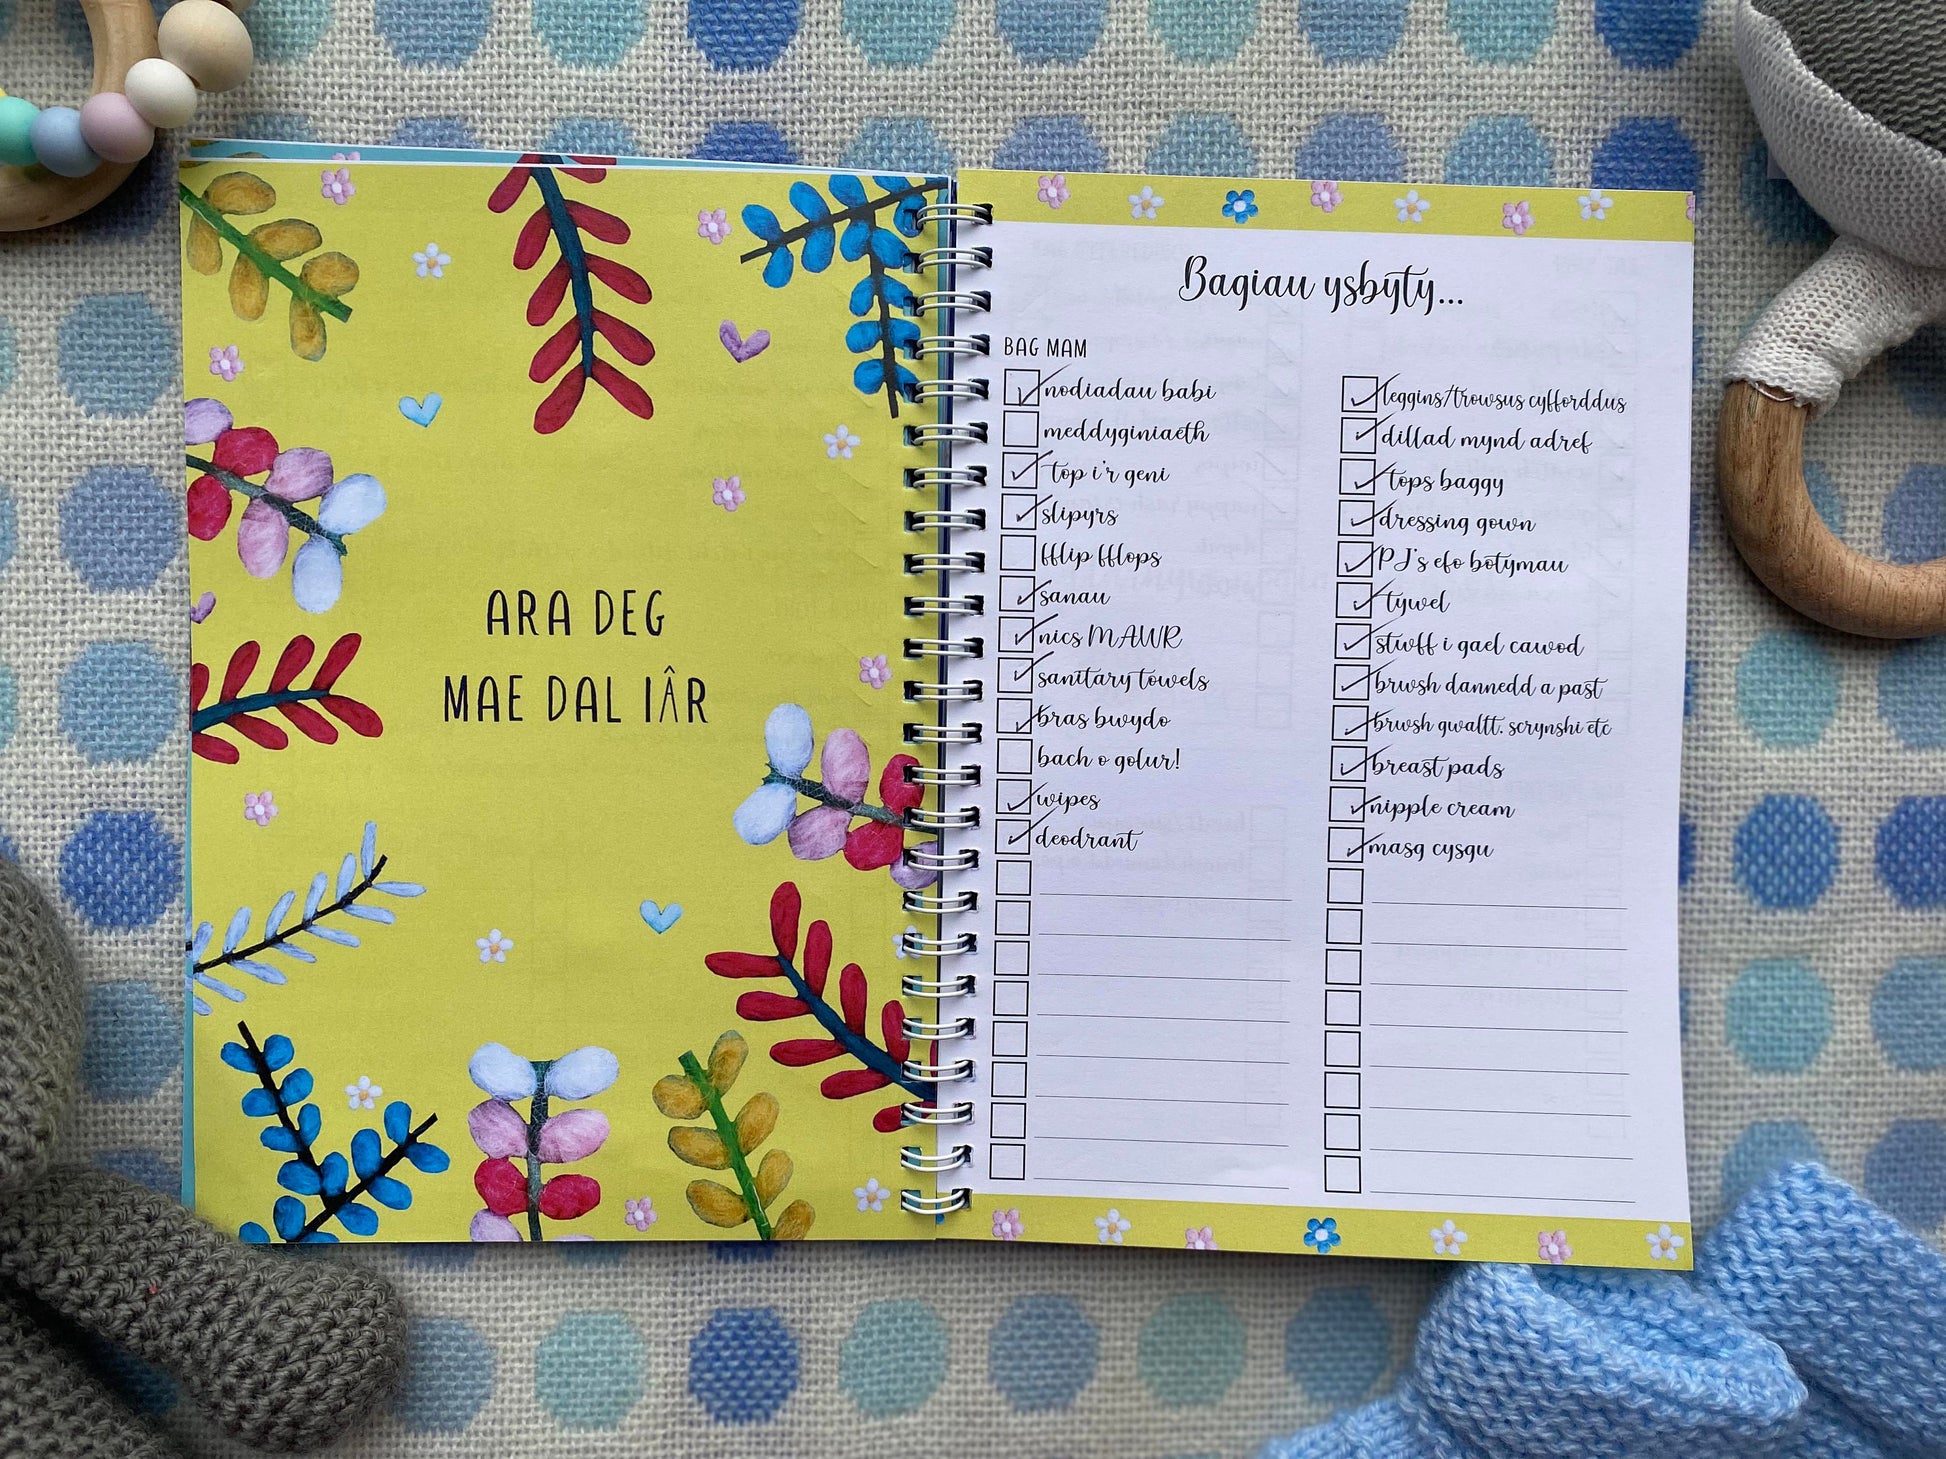 ARA DEG
MAE DAL IÂR
Bagiau ysbyty...
BAG MAM
nodiadau babi
meddyginiaeth
top i'r geni
slipyrs
fflip fflops
sanau
nics MAWR
sanitary towels
bras bwydo
bach o golur!
wipes
deodrant
leggins/trowsus cyfforddus
dillad mynd adref
tops baggy
dressing gown
PJ's efo botymau
tywel
stwff i gael cawod
brwsh dannedd a past
brwsh gwallt, scrynshi etc
breast pads
nipple cream
masg cysgu